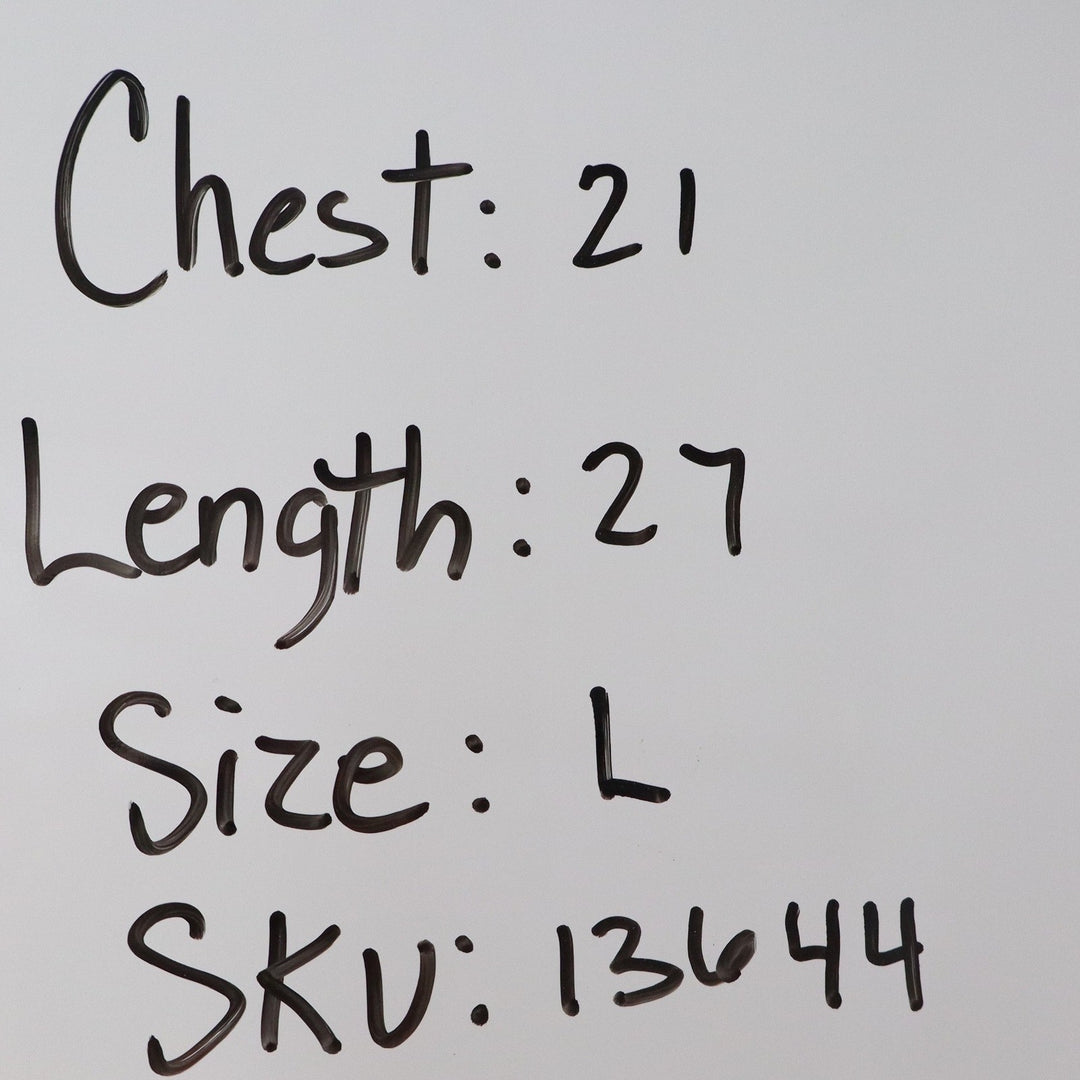 Chest: 21
Length: 27
Size: L
SKU: 13644